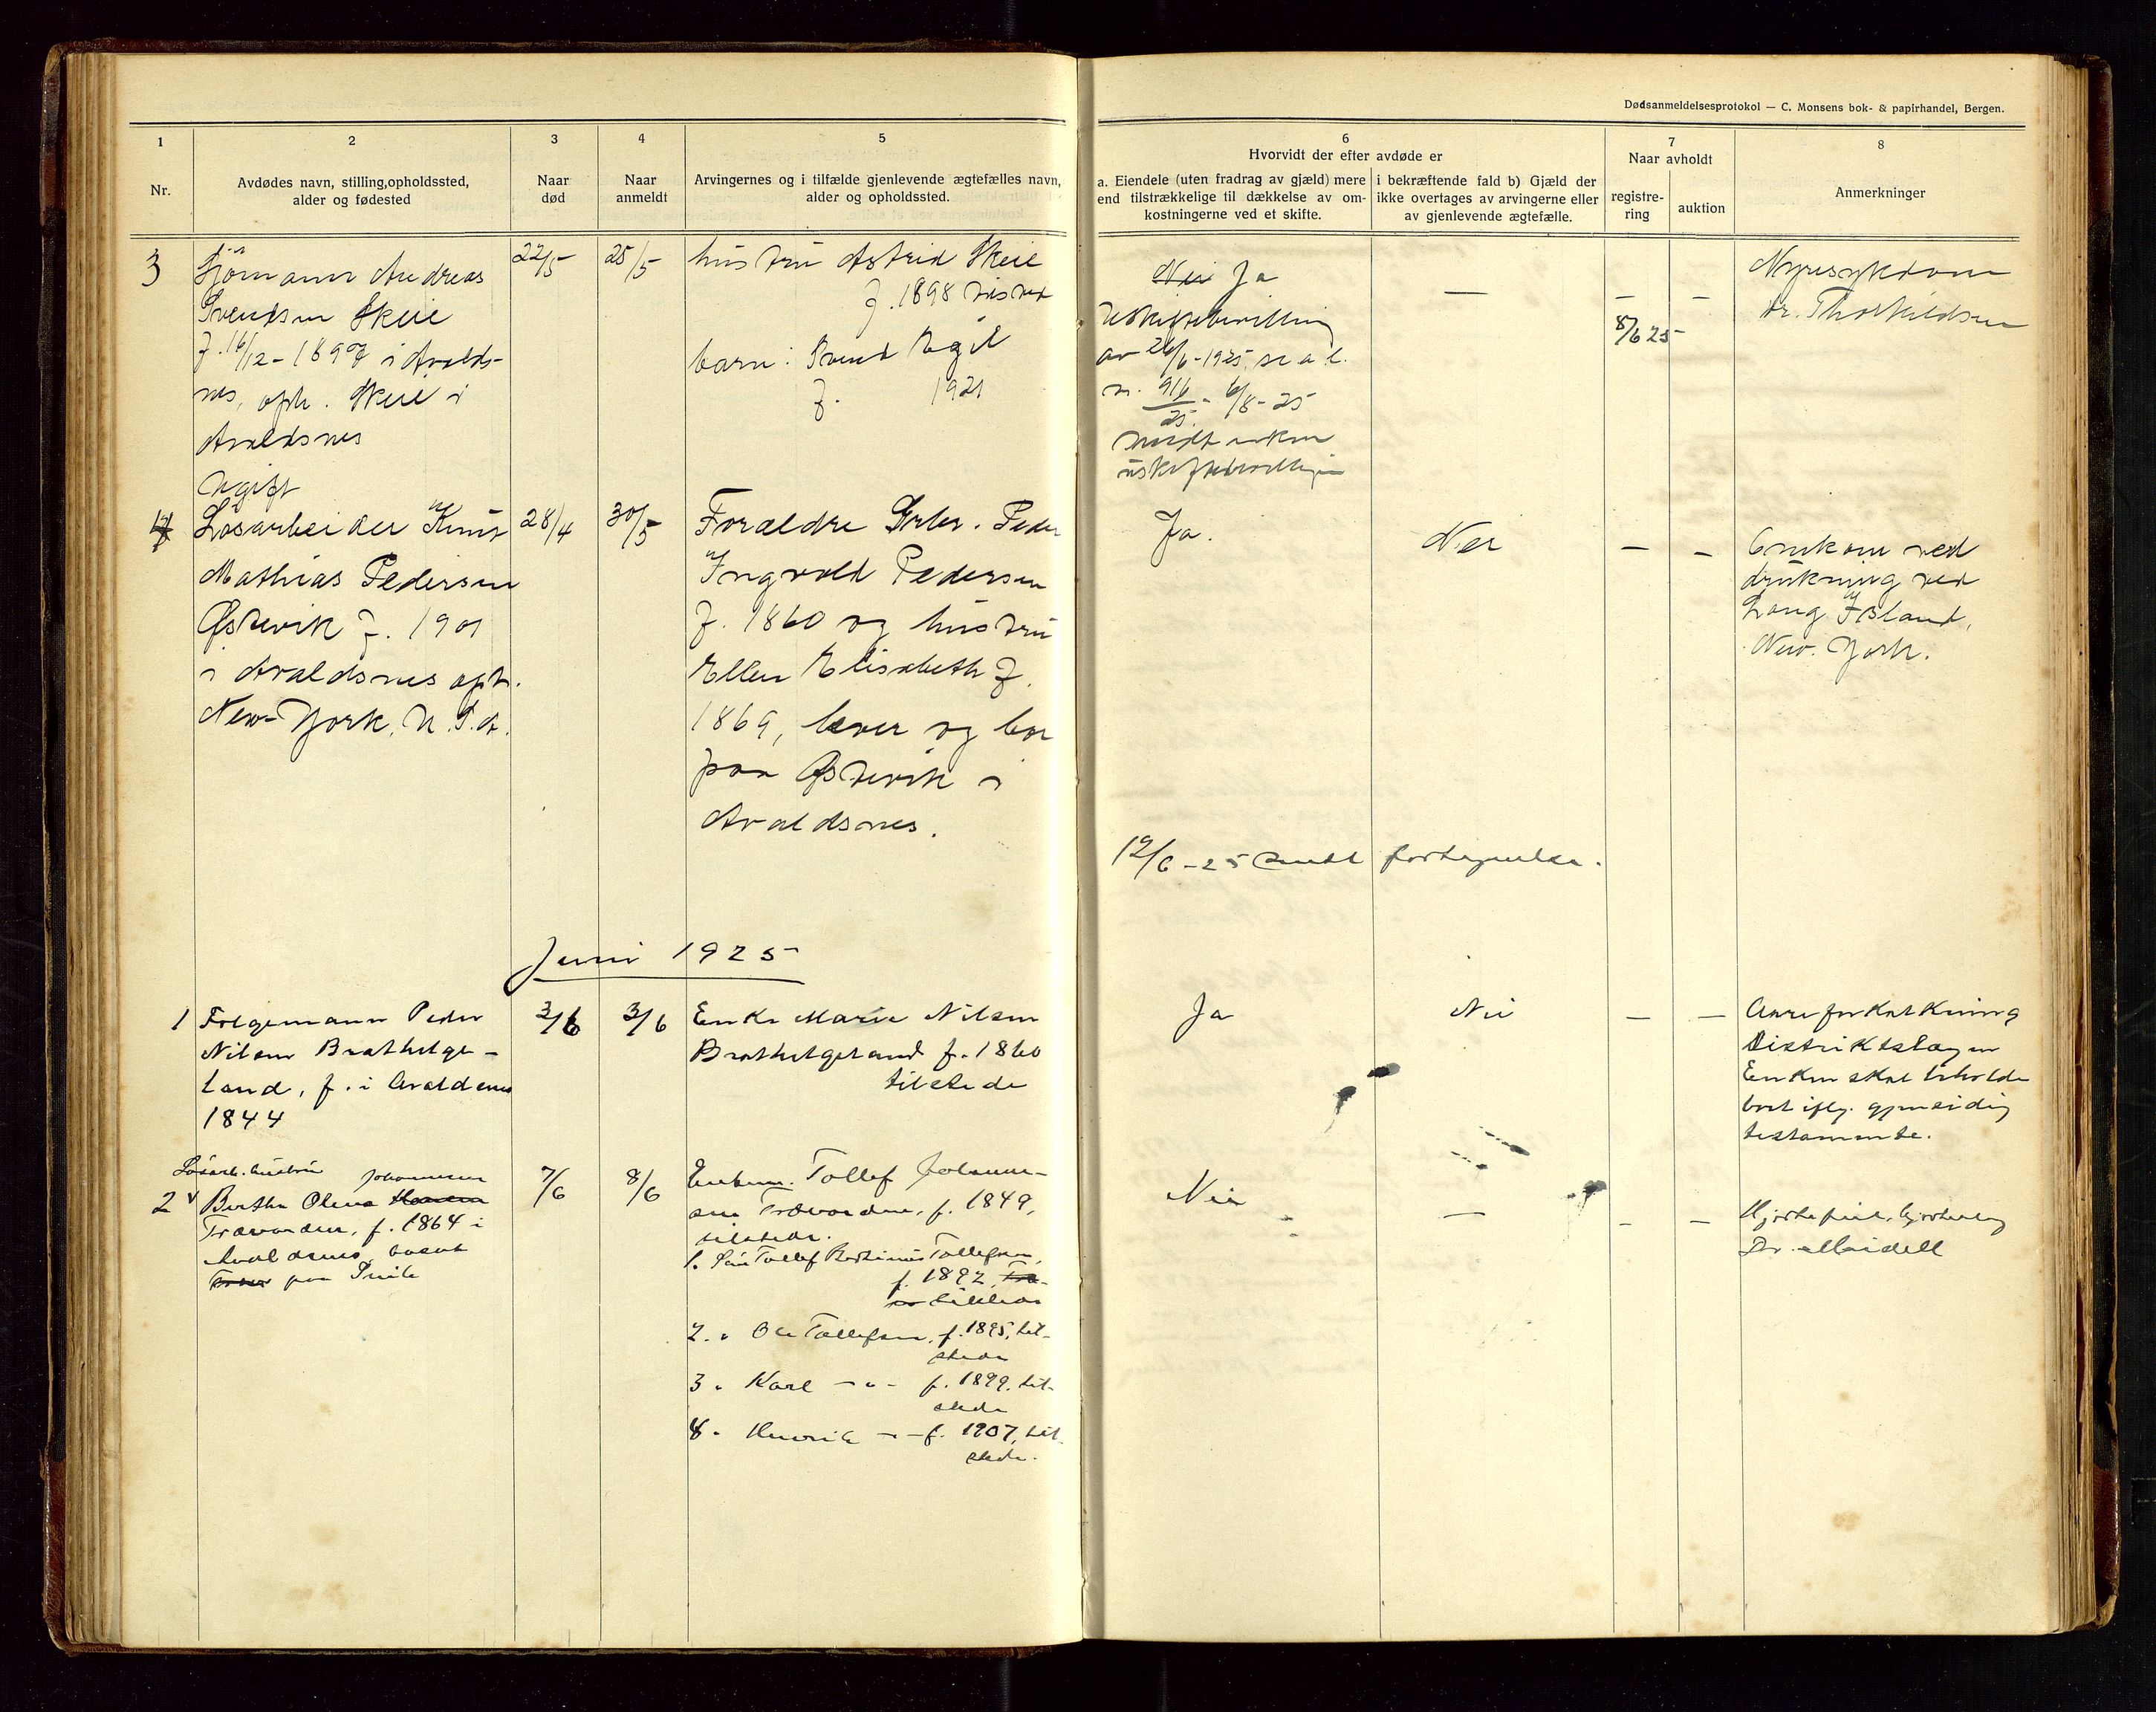 Dødsanmeldelsesprotokol — C. Monsens bok- & papirhandel, Bergen.
1
Nr.
2
Avdødes navn, stilling, opholdssted,
alder og fødested
3
Naar
død
4
Naar
anmeldt
5
Arvingernes og i tilfælde gjenlevende ægtefælles navn,
alder og opholdssted.
6
Hvorvidt der efter avdøde er
a. Eiendele (uten fradrag av gjæld) mere
end tilstrækkelige til dækkelse av om-
kostningerne ved et skifte.
i bekræftende fald b) Gjæld der
ikke overtages av arvingerne eller
av gjenlevende ægtefælle.
7
Naar avholdt
registre-
ring
auktion
8
Anmerkninger
3
Sjømann Andreas
Svendsen Skeie
f. 16/12-1897 i Avalds-
nes, oph. Skeie i
Avaldsnes
Ugift
22/5
25/5
hustru Astrid Skeie
f. 1898 tilsted
barn: Svend Egil
f. 1921
Nei Ja
Uskiftebevilling
av 26/6-1925, se a.l.
n. 916/25 - 6/8-25
uskiftebevillingen
—
—
8/6 25
—
Nyresykdom
dr. Thorkildsen
4
Løsarbeider Knut
Mathias Pedersen
Østevik f. 1901
i Avaldsnes oph.
New-York, U.S.A.
28/4
30/5
Forældre Grbr. Peder
Ingvald Pedersen
f. 1860 og hustru
Ellen Elisabeth f.
1869, lever og bor
paa Østevik i
Avaldsnes.
Ja.
Nei
—
—
Omkom ved
drukning ved
Long Island,
New-York.
12/6-25 sendt fortegnelse.
Juni 1925
1
Folgemann Peder
Nilsen Brathetge-
land, f. i Avaldsnes
1844
3/6
3/6
Enke Marie Nilsen
Brathetgeland f. 1860
tilstede
Ja
Nei
—
—
Aareforkalkning
Distriktslægen
Enken skal beholde
boet iflg. gjensidig
testamente.
Løsarb. hustru
2
Berthe Olene Hansen Johannesen
Trævorden, f. 1864 i
Avaldsnes, bosat
paa Snik
7/6
8/6
Enkem. Tollef Johannes-
sen Trævorden, f. 1849,
tilstede.
1. Søn Tollef Bertinus Tollefsen,
f. 1892,
tilstede
2. " Ole Tollefsen, f. 1895, til-
stede
3 " Karl — " — f. 1899, til-
stede
4 " Henrik — " — f. 1907, til-
stede.
Nei
—
—
—
Hjertefeil,
Dr. Meidell